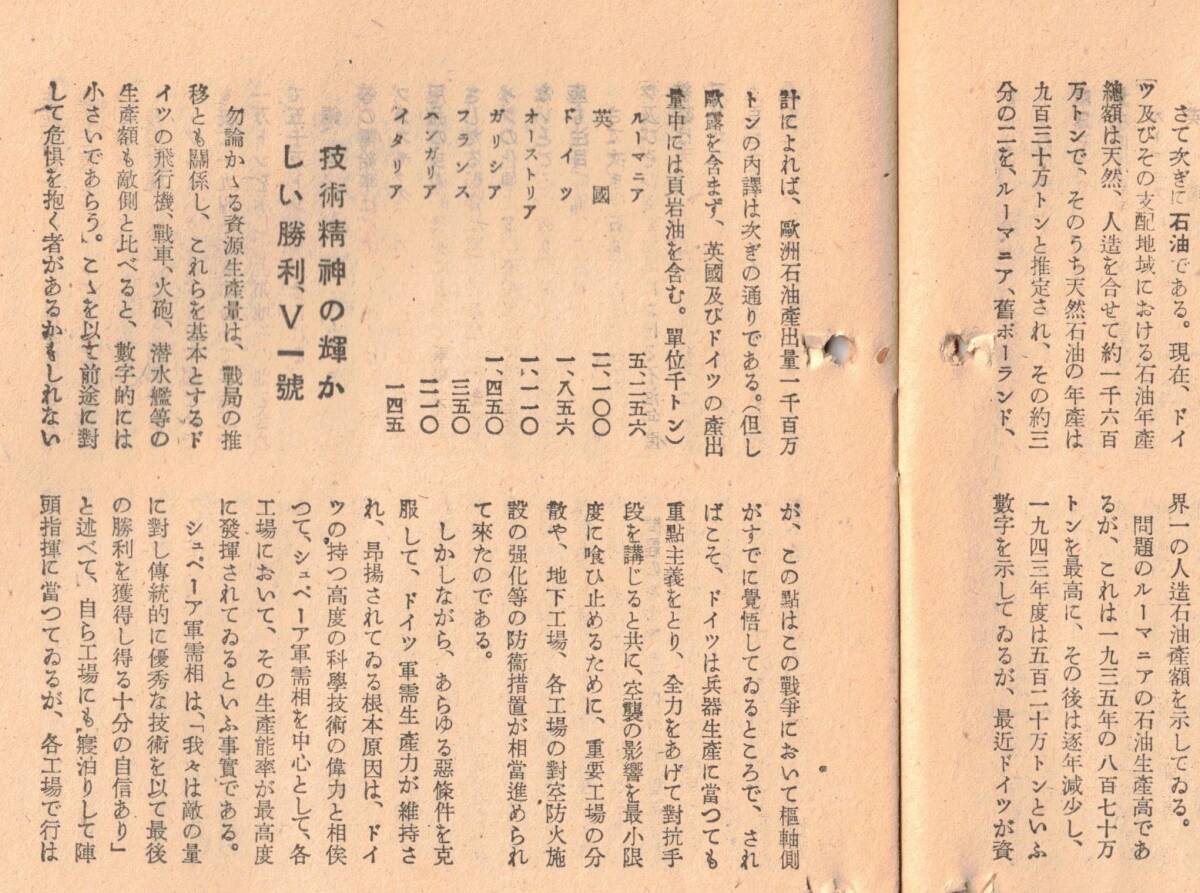 さて次ぎに石油である。現在、ドイ
ツ及びその支配地域における石油年產
總額は天然、人造を合せて約一千六百
万トンで、そのうち天然石油の年產は
九百三十万トンと推定され、その約三
分の二を、ルーマニア、舊ポーランド、
界一の人造石油產額を示してゐる。
問題のルーマニアの石油生產高であ
るが、これは一九三五年の八百七十万
トンを最高に、その後は逐年減少し、
一九四三年度は五百二十万トンといふ
數字を示してゐるが、最近ドイツが資
計によれば、歐洲石油產出量一千百万
トンの內譯は次ぎの通りである。(但し
歐露を含まず、英國及びドイツの產出
量中には頁岩油を含む。單位千トン)
ルーマニア 五、二五六
英國 二、一〇〇
ドイツ 一、八五六
オーストリア 一、一一〇
ガリシア 一、四五〇
フランス 三五〇
ハンガリア 二一〇
イタリア 一四五
技術精神の輝か
しい勝利、V一號
勿論かゝる資源生產量は、戰局の推
移とも關係し、これらを基本とするド
イツの飛行機、戰車、火砲、潜水艦等の
生產額も敵側と比べると、數字的には
小さいであらう。こゝを以て前途に對
して危惧を抱く者があるかもしれない
が、この點はこの戰爭において樞軸側
がすでに覺悟してゐるところで、され
ばこそ、ドイツは兵器生產に當つても
重點主義をとり、全力をあげて對抗手
段を講じると共に、空襲の影響を最小限
度に喰ひ止めるために、重要工場の分
散や、地下工場、各工場の對空防火施
設の强化等の防衞措置が相當進められ
て來たのである。
しかしながら、あらゆる惡條件を克
服して、ドイツ軍需生產力が維持さ
れ、昻揚されてゐる根本原因は、ドイ
ツの持つ高度の科學技術の偉力と相俟
つて、シュペーア軍需相を中心として、各
工場において、その生產能率が最高度
に發揮されてゐるといふ事實である。
シュペーア軍需相は、「我々は敵の量
に對し傳統的に優秀な技術を以て最後
の勝利を獲得し得る十分の自信あり」
と述べて、自ら工場にも寢泊りして陣
頭指揮に當つてゐるが、各工場では行は